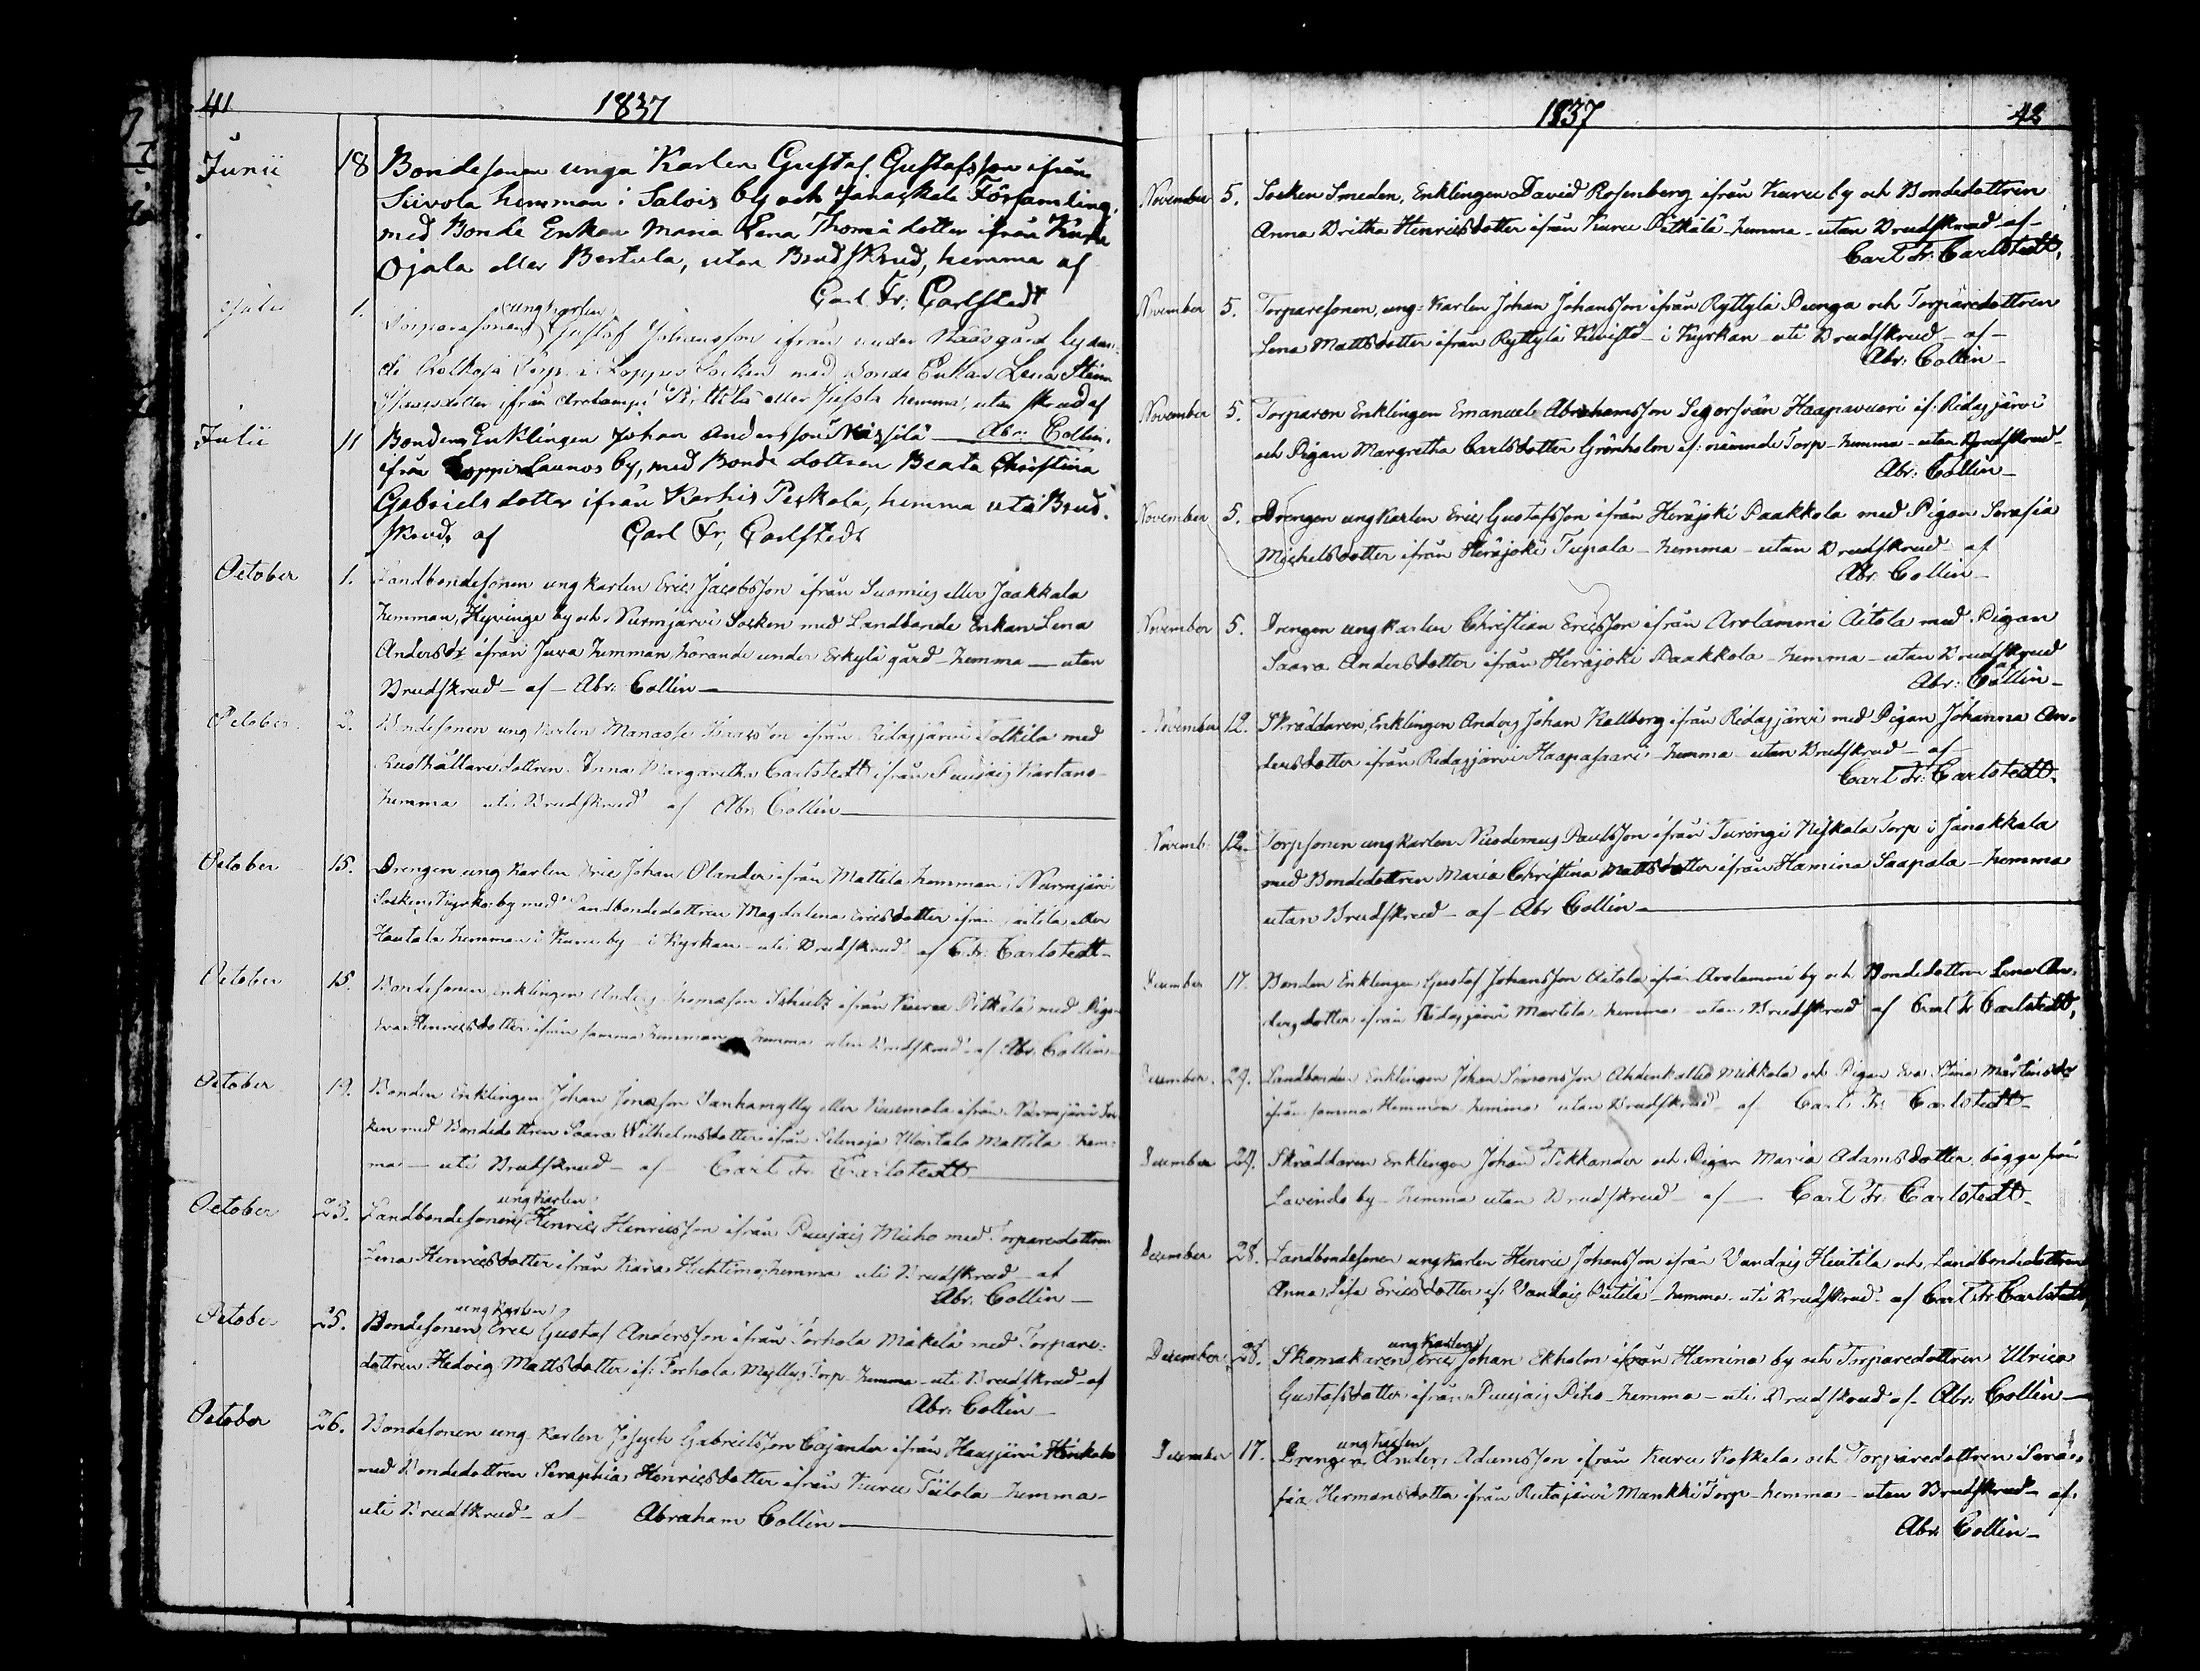 41
1837
Junii 18 Bondesonen unga Karlen Gustaf Gustafsson ifrån
Siivola hemman i Salois by och Janaskala Församling,
med Bonde Enkan Maria Lena Thomædotter ifrån Kuru
Ojala eller Bertula, utan BrudSkrud, hemma af
Carl Fr: Carlstedt
ungkarlen
Julii 1. Torparesonen Gustaf Johansson ifrån under Näås gård lydan-
de Torp i Loppis Socken med Bonde Enkan Lena
dotter ifrån Arolampi Pirttilä eller hemma, utan skrud af
Abr: Collin.
Julii 11 Bonden, Enklingen Johan Andersson Nissilä
ifrån Loppis Launos by, med Bonde dottren Beata Christina
Gabriels dotter ifrån Karhis Peskola, hemma uti Brud-
skrud, af Carl Fr, Carlstedt
October 1. Landbondesonen ungkarlen Eric Jacobsson ifrån Suomies eller Jaakkala
hemman, Hyvinge by och Nurmjärvi Socken med Landbonde Enkan Lena
Andersdr ifrån Juva hemman, hörande under Erkylä gård - hemma - utan
Brudskrud - af - Abr: Collin -
October 2. Bondesonen ungkarlen Manasse Isaacsson ifrån Ridasjärvi Tolkila med
Rusthållare dottren Anna Margaretha Carlstedt ifrån Puujais Kartano -
hemma uti Brudskrud af Abr: Collin -
October 15. Drengen ungkarlen Eric Johan Olander ifrån Mattila hemman i Nurmjärvi
Socken, Kyrkoby med Landbondedottren Magdalena Ericsdotter ifrån eller
Hautala hemman i Kuru by - i Kyrkan - uti Brudskrud - af C. Fr: Carlstedt -
October 15. Bondesonen, Enklingen Anders Thomasson Schultz ifrån Kuru Pitkälä med Pigan
Eva Henricsdotter ifrån samma hemman - hemma utan Brudskrud - af Abr: Collin -
October 19. Bonden Enklingen Johan Jonasson Vanhamylly eller ifrån Nurmjärvi Soc-
ken med Bondedottren Saara Wilhelmsdotter ifrån Selinoja Mattila - hem-
ma - uti Brudskrud - af - Carl Fr: Carlstedt -
ungkarlen
October 23. Landbondesonen Henric Henricsson ifrån Puujais med Torparedottren
Lena Henricsdotter ifrån Kara Huhtimo, hemma uti Brudskrud - af
Abr: Collin -
ungkarlen
October 25. Bondesonen Eric Gustaf Andersson ifrån Torhola Mäkelä med Torpare-
dottren Hedvig Mattsdotter if: Torhola Myllys Torp - hemma - uti Brudskrud - af
Abr: Collin -
October 26. Bondesonen ungkarlen Joseph Gabrielsson Cajander ifrån Hausjärvi
med Bondedottren Seraphia Henricsdotter ifrån Kuru Tiitola - hemma -
uti Brudskrud - af - Abraham Collin -
1837
42
November 5. Socken Smeden, Enklingen David Rosenberg ifrån Kuru by och Bondedottren
Anna Britha Henricsdotter ifrån Kuru Pitkälä - hemma - utan Brudskrud - af -
Carl Fr: Carlstedt,
November 5. Torparesonen, ung-Karlen Johan Johansson ifrån Ryttylä Punga och Torparedottren
Lena Mattsdotter ifrån Ryttylä Kivistö - i Kyrkan - uti Brudskrud - af -
Abr: Collin -
November 5. Torparen Enklingen Emanuel Abrahamsson Segersvän Haapavuori if: Ridasjärvi
och Pigan Margretha Carlsdotter Grönholm if: nämnde Torp - hemma - utan Brudskrud -
Abr: Collin -
November 5. Drengen ungkarlen Eric Gustafsson ifrån Heräjoki Paakkola med Pigan Serafia
Michelsdotter ifrån Heräjoki Tupala - hemma - utan Brudskrud - af
Abr: Collin -
November 5. Drengen ungkarlen Christian Ericsson ifrån Arolammi Aitola med Pigan
Saara Andersdotter ifrån Heräjoki Paakkola - hemma - utan Brudskrud
af
Abr: Collin -
November 12. Skräddaren, Enklingen Anders Johan Kallberg ifrån Ridasjärvi med Pigan Johanna An-
dersdotter ifrån Ridasjärvi Haapasaari - hemma - utan Brudskrud - af
Carl Fr: Carlstedt -
Novemb: 12. Torpsonen ungkarlen Nicodemus Paulsson ifrån Turengi Torp i Janakkala
med Bondedottren Maria Christina Mattsdotter ifrån Hamina Saapala - hemma
utan Brudskrud - af - Abr Collin -
December 17. Bonden Enklingen Gustaf Johansson Aitola ifrån Arolammi by och Bondedottren Lena An-
dersdotter ifrån Ridasjärvi Martila - hemma - utan Brudskrud af Carl Fr Carlstedt,
December. 29. Landbonden Enklingen Johan Simonsson Mikkola och Pigan Eva Stina Mårtensdr
ifrån samma Hemman - hemma - utan Brudskrud - af Carl Fr. Carlstedt -
December 29. Skräddaren Enklingen Johan Tikkander och Pigan Maria Adamsdotter bägge från
Lavinds by - hemma utan Brudskrud - af - Carl Fr. Carlstedt -
December 28. Landbondesonen ungkarlen Henric Johansson ifrån Vandais Heutilä och Landbondedottren
Anna Lisa Ericsdotter if: Vandais - hemma - uti Brudskrud - af Carl Fr Carlstedt
ungkarlen
December 28. Skomakaren, Eric Johan Ekholm ifrån Hamina by och Torparedottren Ulrica
Gustafsdotter ifrån Puujais Piho - hemma - uti Brudskrud af - Abr: Collin -
ungkarlen
December 17. Drengen Anders Adamsson ifrån Kuru Koskela och Torparedottren Sera-
fia Hermansdotter ifrån Rutajärvi Mankki Torp - hemma - utan Brudskrud - af:
Abr: Collin -